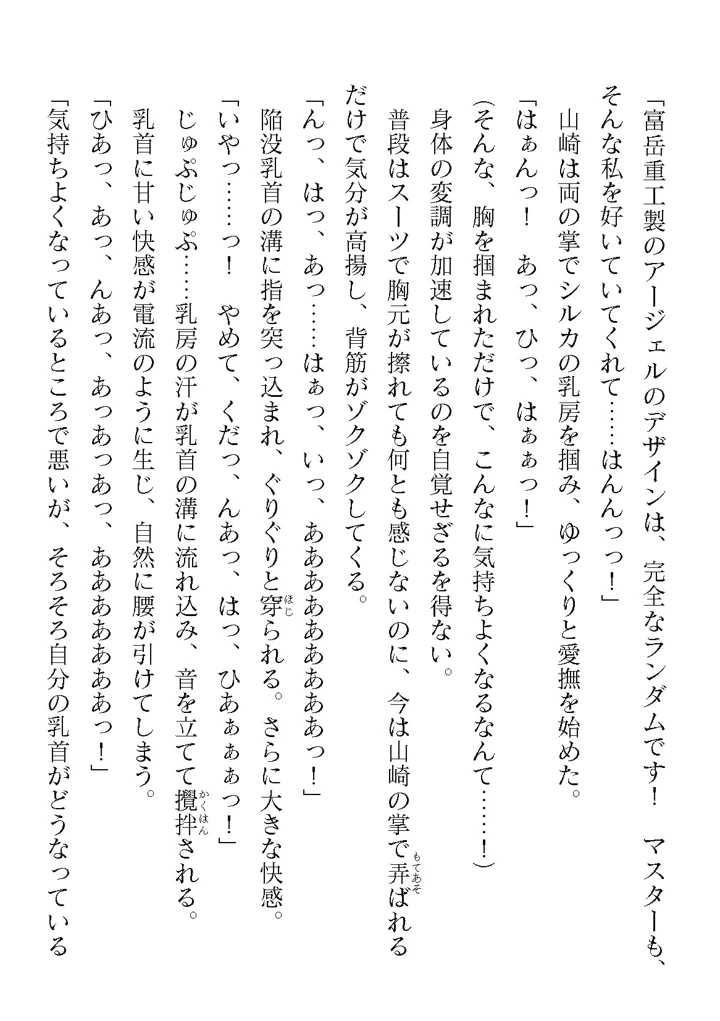 「富岳重工製のアージェルのデザインは、完全なランダムです！　マスターも、
そんな私を好いていてくれて……はんんっっ！」
山崎は両の掌でシルカの乳房を掴み、ゆっくりと愛撫を始めた。
「はぁんっ！　あっ、ひっ、はぁぁっ！」
（そんな、胸を掴まれただけで、こんなに気持ちよくなるなんて……！）
身体の変調が加速しているのを自覚せざるを得ない。
普段はスーツで胸元が擦れても何とも感じないのに、今は山崎の掌で弄ばれる
もてあそ
だけで気分が高揚し、背筋がゾクゾクしてくる。
「んっ、はっ、あっ……はぁっ、いっ、ああああああああああっ！」
陥没乳首の溝に指を突っ込まれ、ぐりぐりと穿られる。さらに大きな快感。
ほじ
「いやっ……っ！　やめて、くだっ、んあっ、はっ、ひあぁぁぁっ！」
じゅぷじゅぷ……乳房の汗が乳首の溝に流れ込み、音を立てて攪拌される。
かくはん
乳首に甘い快感が電流のように生じ、自然に腰が引けてしまう。
「ひあっ、あっ、んあっ、あっあっあっ、ああああああああっ！」
「気持ちよくなっているところで悪いが、そろそろ自分の乳首がどうなっている